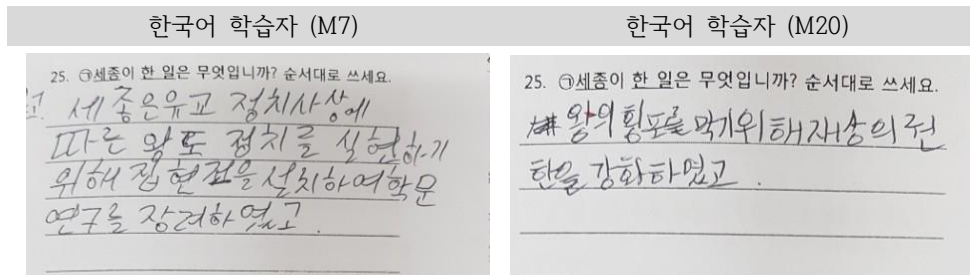 한국어 학습자 (M7)
한국어 학습자 (M20)
25. ㉠세종이 한 일은 무엇입니까? 순서대로 쓰세요.
세종은유교 정치사상에
따른 왕도 정치를 실현하기
위해 집현전을 설치하여학문
연구를 장려하였고.
25. ㉠세종이 한 일은 무엇입니까? 순서대로 쓰세요.
왕의 횡포를 막기위해재상의권
한을 강화하였고.